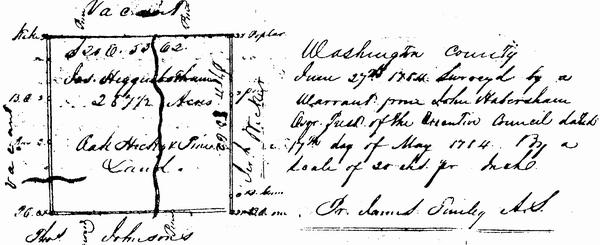 Vacant
Pine
Stake
Poplar
S 20 E. 53.62
Jas. Higginbotham
287 1/2 Acres
Oak Hickory & Pine
Land.
Vacant
B.O.
Pine
P.O.
Thos. Johnson's
Washington County
June 27th 1784. Surveyed by a
Warrant from John Habersham
Esqr. Prest. of the Executive Council dated
17th day of May 1784. By a
Scale of 20 chs. pr. Inch
Pr. James Tinley A.S.